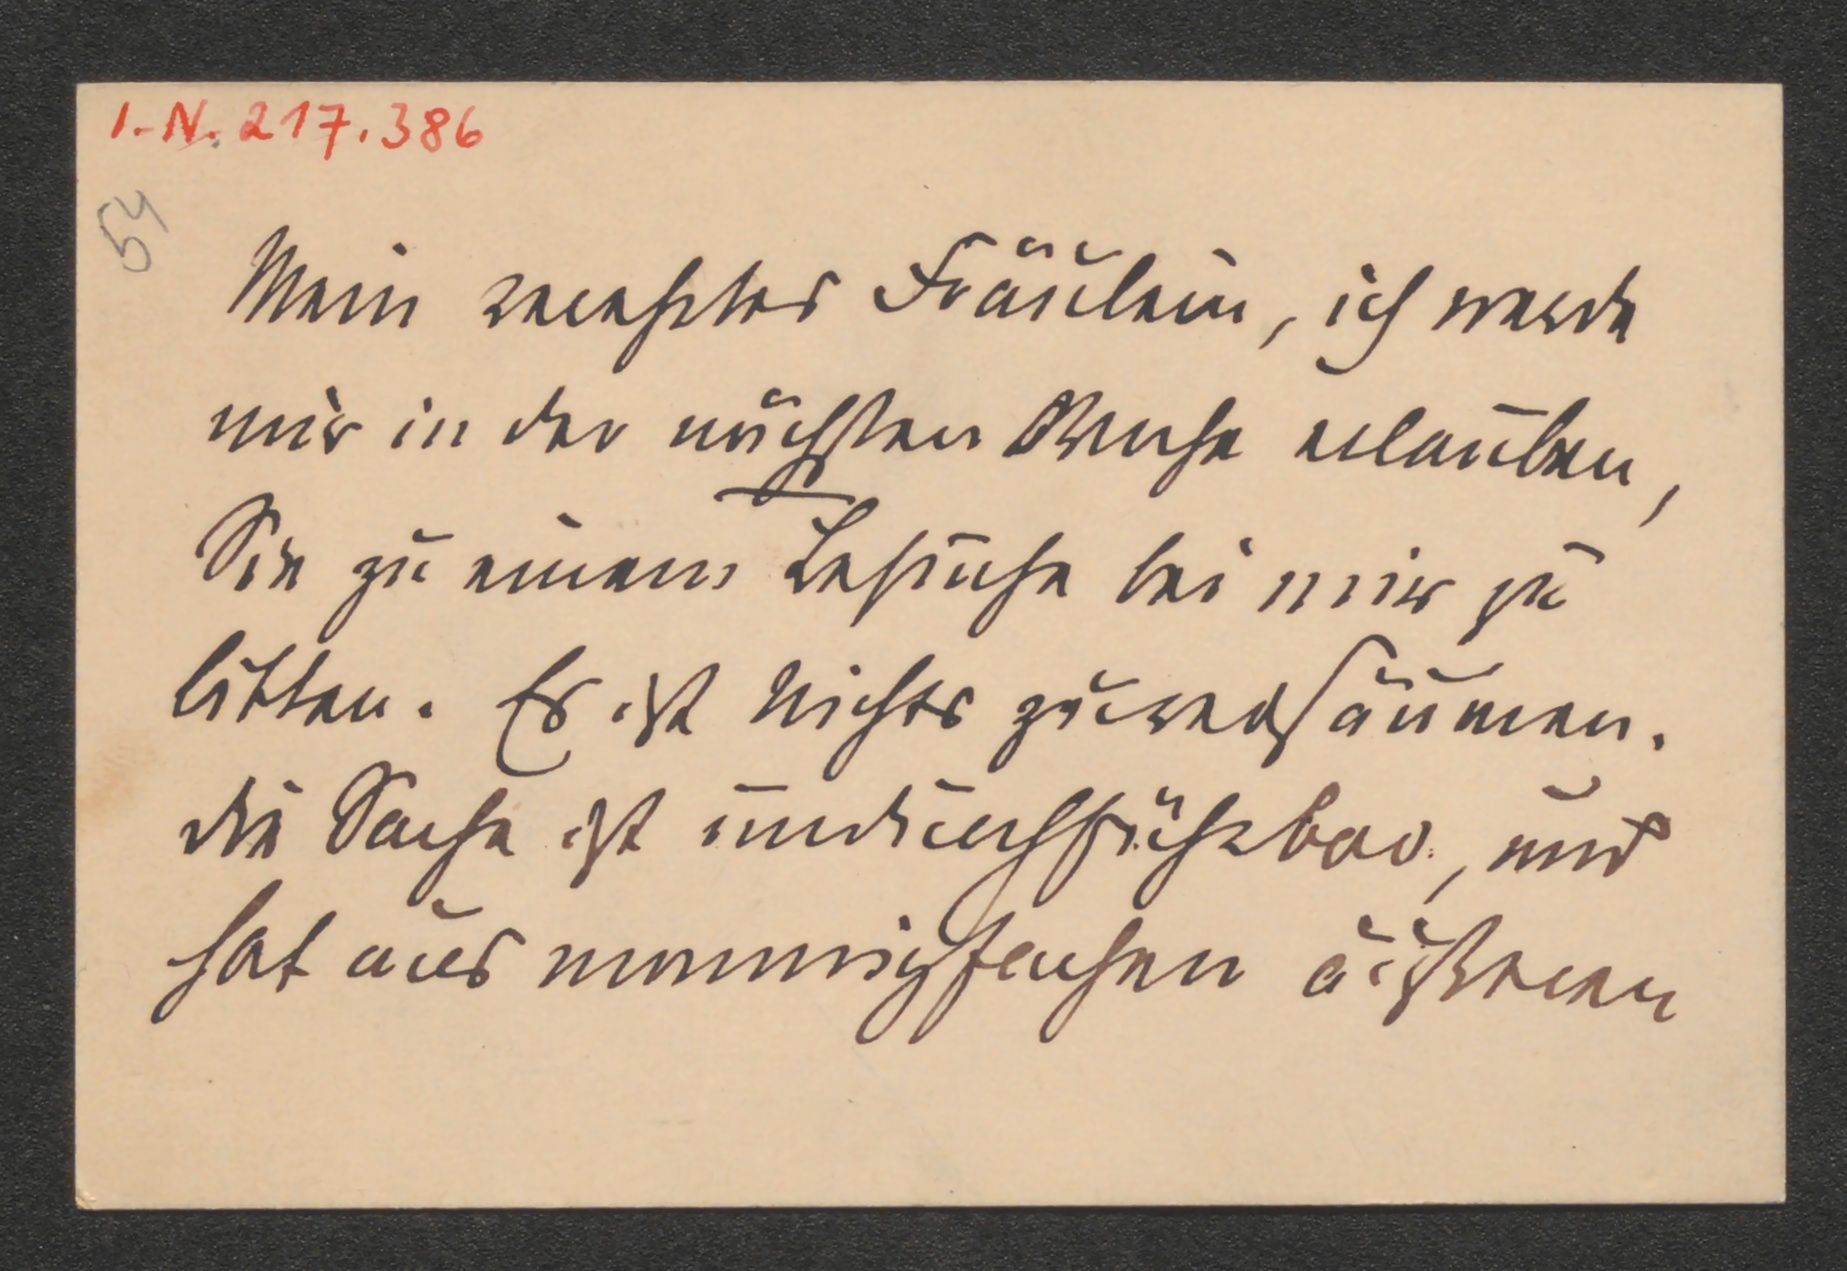 I.-N. 217.386
54
Mein verehrtes Fräulein, ich werde
mir in der nächsten Woche erlauben,
Sie zu einem Besuche bei mir zu
bitten. Es ist Nichts zu versäumen.
die Sache ist undurchführbar, und
hat aus mannigfachen äußeren